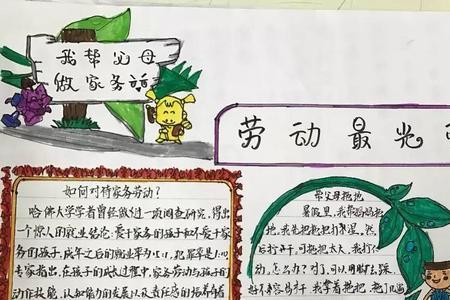 我帮父母
做家务活
劳动最光
如何对待家务劳动？
哈佛大学学者曾经做过一项调查研究，得出
一个惊人的就业结论：爱干家务的孩子和不爱干家
务的孩子，成年之后的就业率为15:1，犯罪率是1:10
专家指出，在孩子的成长过程中，家务劳动与孩子的
动作技能、认知能力的发展以及责任感的培养有着
帮父母拖地
暑假里，我帮妈妈拖
地，我先把拖把打湿，然
后打开，可拖把太大，我打
动，怎么办？对了，可以用脚去踩